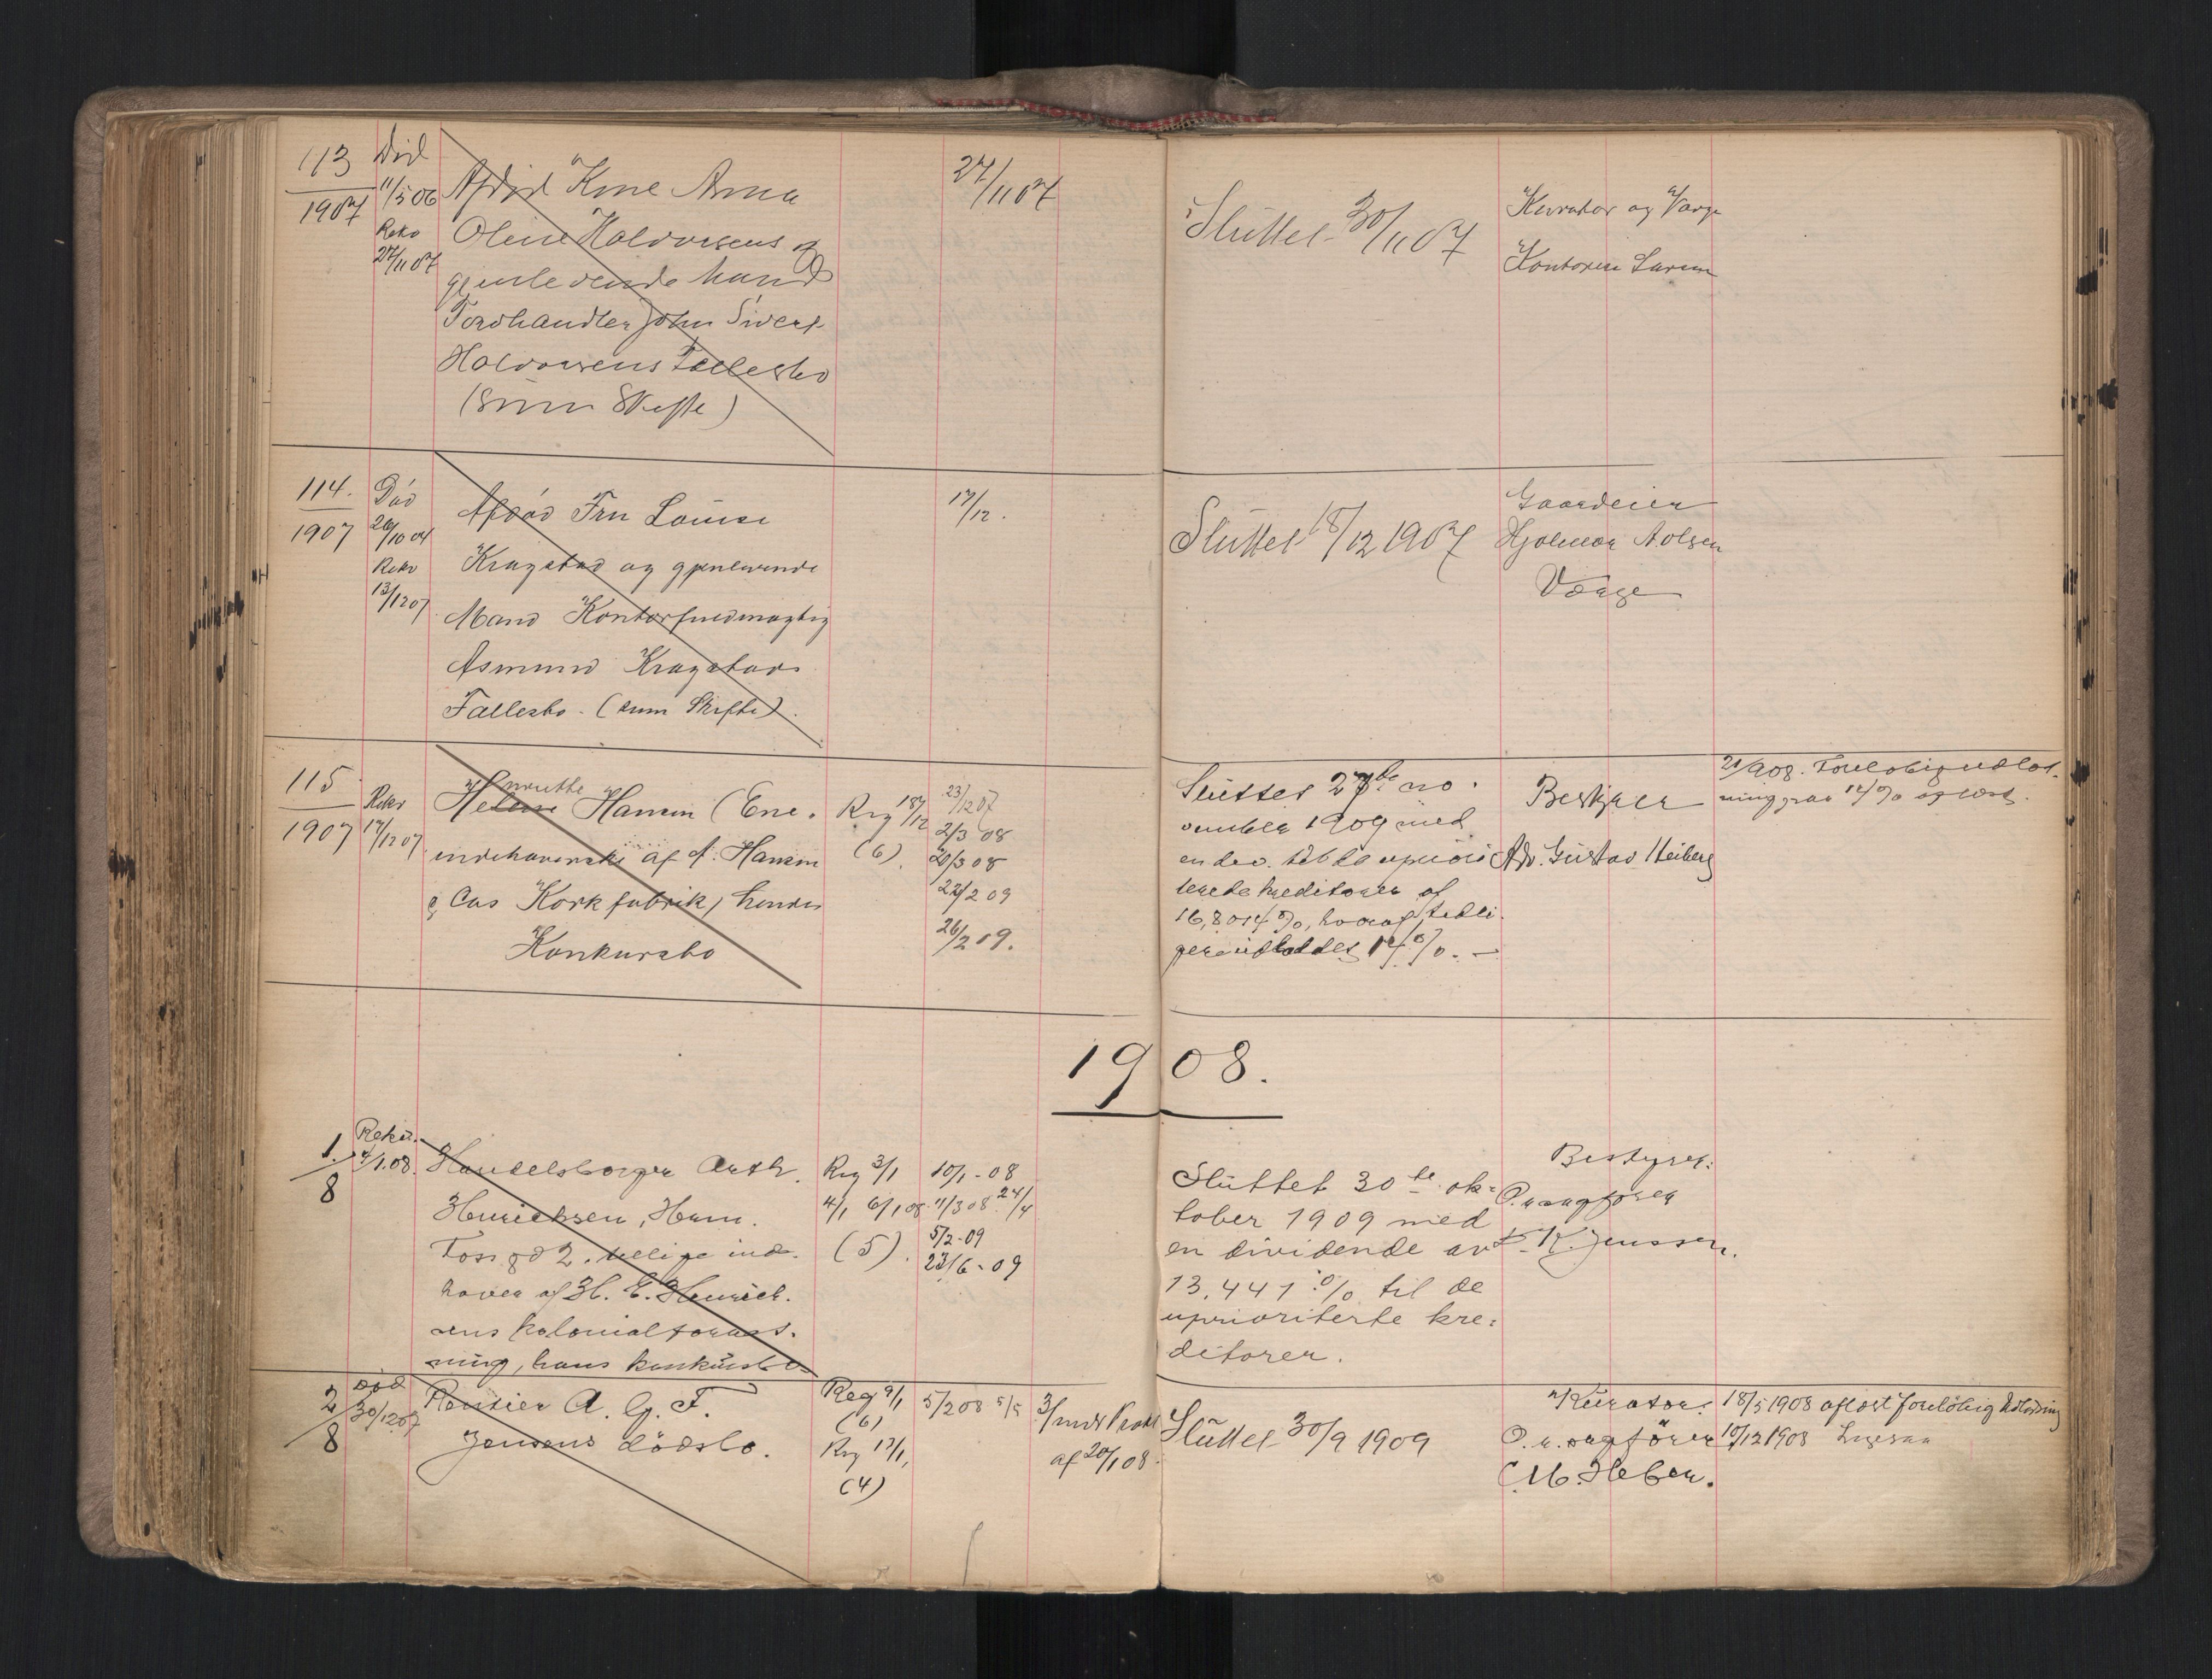 113
1907
Död
11/5 06
Rekv
27/11 07
Afdöd Kone Anna
Oline Halvorsens og
gjenlevende mand
Fordhandler John Sivert
Halvorsens Fællesbo
(Sum Skifte)
27/11 07
Sluttet 30/11 07
Kurator og Værge
Kontorist Larsen
114.
1907
Död
26/10 04
Rekv
13/12 07
Afdöd Fru Louise
Kragstad og gjenlevende
Mand Kontorfuldmægtig
Asmund Kragstads
Fællesbo. (sum Skifte).
17/12.
Sluttet 18/12 1907
Gaardeier
Hjalmar Aolsen
Værge
115
1907
Rekv
17/12 07
Helene Hansen (Ene-
indehaverske af A. Hansen
& Cos Korkfabrik) hendes
Konkursbo
Reg 18/12
(6).
23/12 07
2/3 08
20/3 08
22/2 09
26/2 09.
Sluttet 27de no-
vember 1909 med
en div. til de uprior-
terede kreditorer af
16,8014 %, hvoraf tidli-
gere udloddet 14 %. —
Bestyrer
Adv. Gustav Heiberg
21/9 08. Foreløbig udlod-
ning paa 14 % aflæst.
1908.
1.
8
Rekv.
2/1.08.
Handelsborger Arth.
Henrichsen, Herm.
Foss gd 2. tellige ind-
haver af H. E. Henrich-
sens kolonialforret-
ning, hans konkursbo.
Reg 3/1
4/1 6/1 08.
(5).
10/1-08
11/3 08. 24/4
5/2-09
23/6-09
Sluttet 30te ok-
tober 1909 med
en dividende av
13.441 % til de
uprioriterte kre-
ditorer.
Bestyrer:
O.r.sagförer
K. Jenssen.
2
8
Död
30/12 07
Rentier A. G. F.
Jensens dödsbo.
Reg 9/1
(6)
Reg 17/1,
(4)
5/2 08 5/5
3/mdrs Prokl
af 20/1 08.
Sluttet 30/9 1909
Kurator:
O.r.sagförer
C. M. Heber.
18/5 1908 aflæst foreløbig Udlodning
10/12 1908